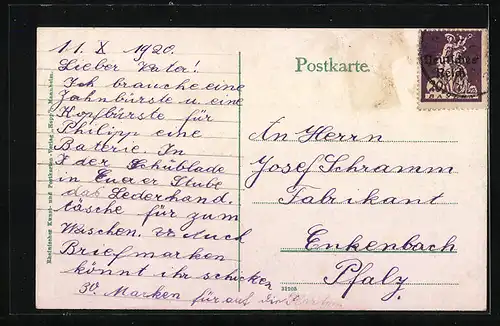 11. X 1920.
Lieber Vater!
Ich brauche eine
Zahnbürste u. eine
Kopfbürste für
Philipp eine
Baterie. In
der Schublade
in Eurer Stube
das Lederhand.
täsche für zum
Waschen. Auch
Briefmarken
könnt ihr schicken
30 Marken für auf die
Postkarte.
Deutsches
Reich
An Herrn
Josef Schramm
Fabrikant
Enkenbach
Pfalz
31105
Rheinischer Kunst- und Postkarten-Verlag